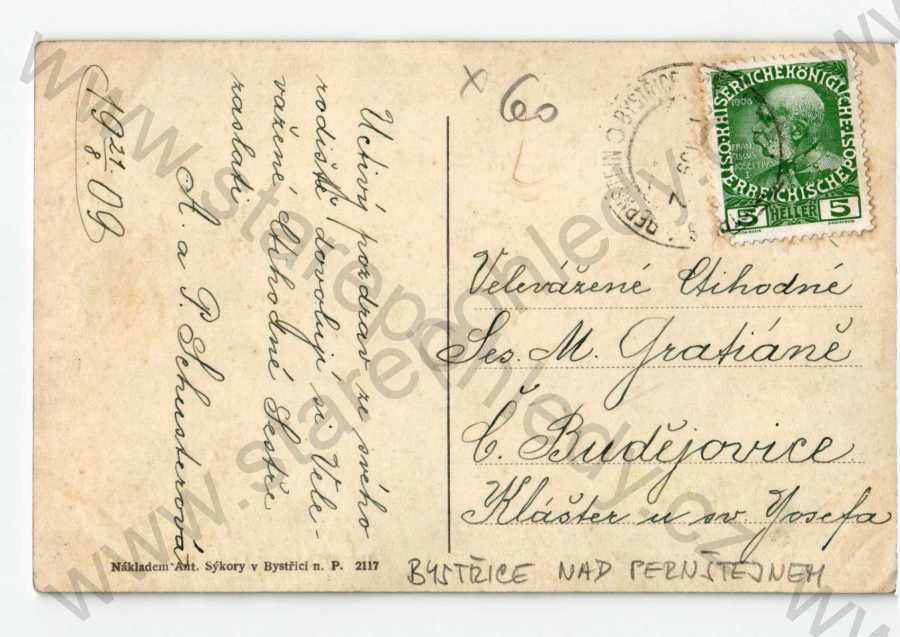 19 21./8. 09
Uctivý pozdrav ze svého
rodiště dovolují si Vele-
vážené Ctihodné Sestře
zaslati
A. a P. Schusterová
Nákladem Ant. Sýkory v Bystřici n. P. 2117
× 60
BYSTŘICE
KAISERLICHE KÖNIGLICHE
ÖSTERREICHISCHE
1908
5 HELLER 5
Velevážené Ctihodné
Ses. M. Gratiáně
Č. Budějovice
Klášter u sv. Josefa
BYSTŘICE NAD PERNŠTEJNEM
www.starepohledy.cz
www.starepohledy.cz